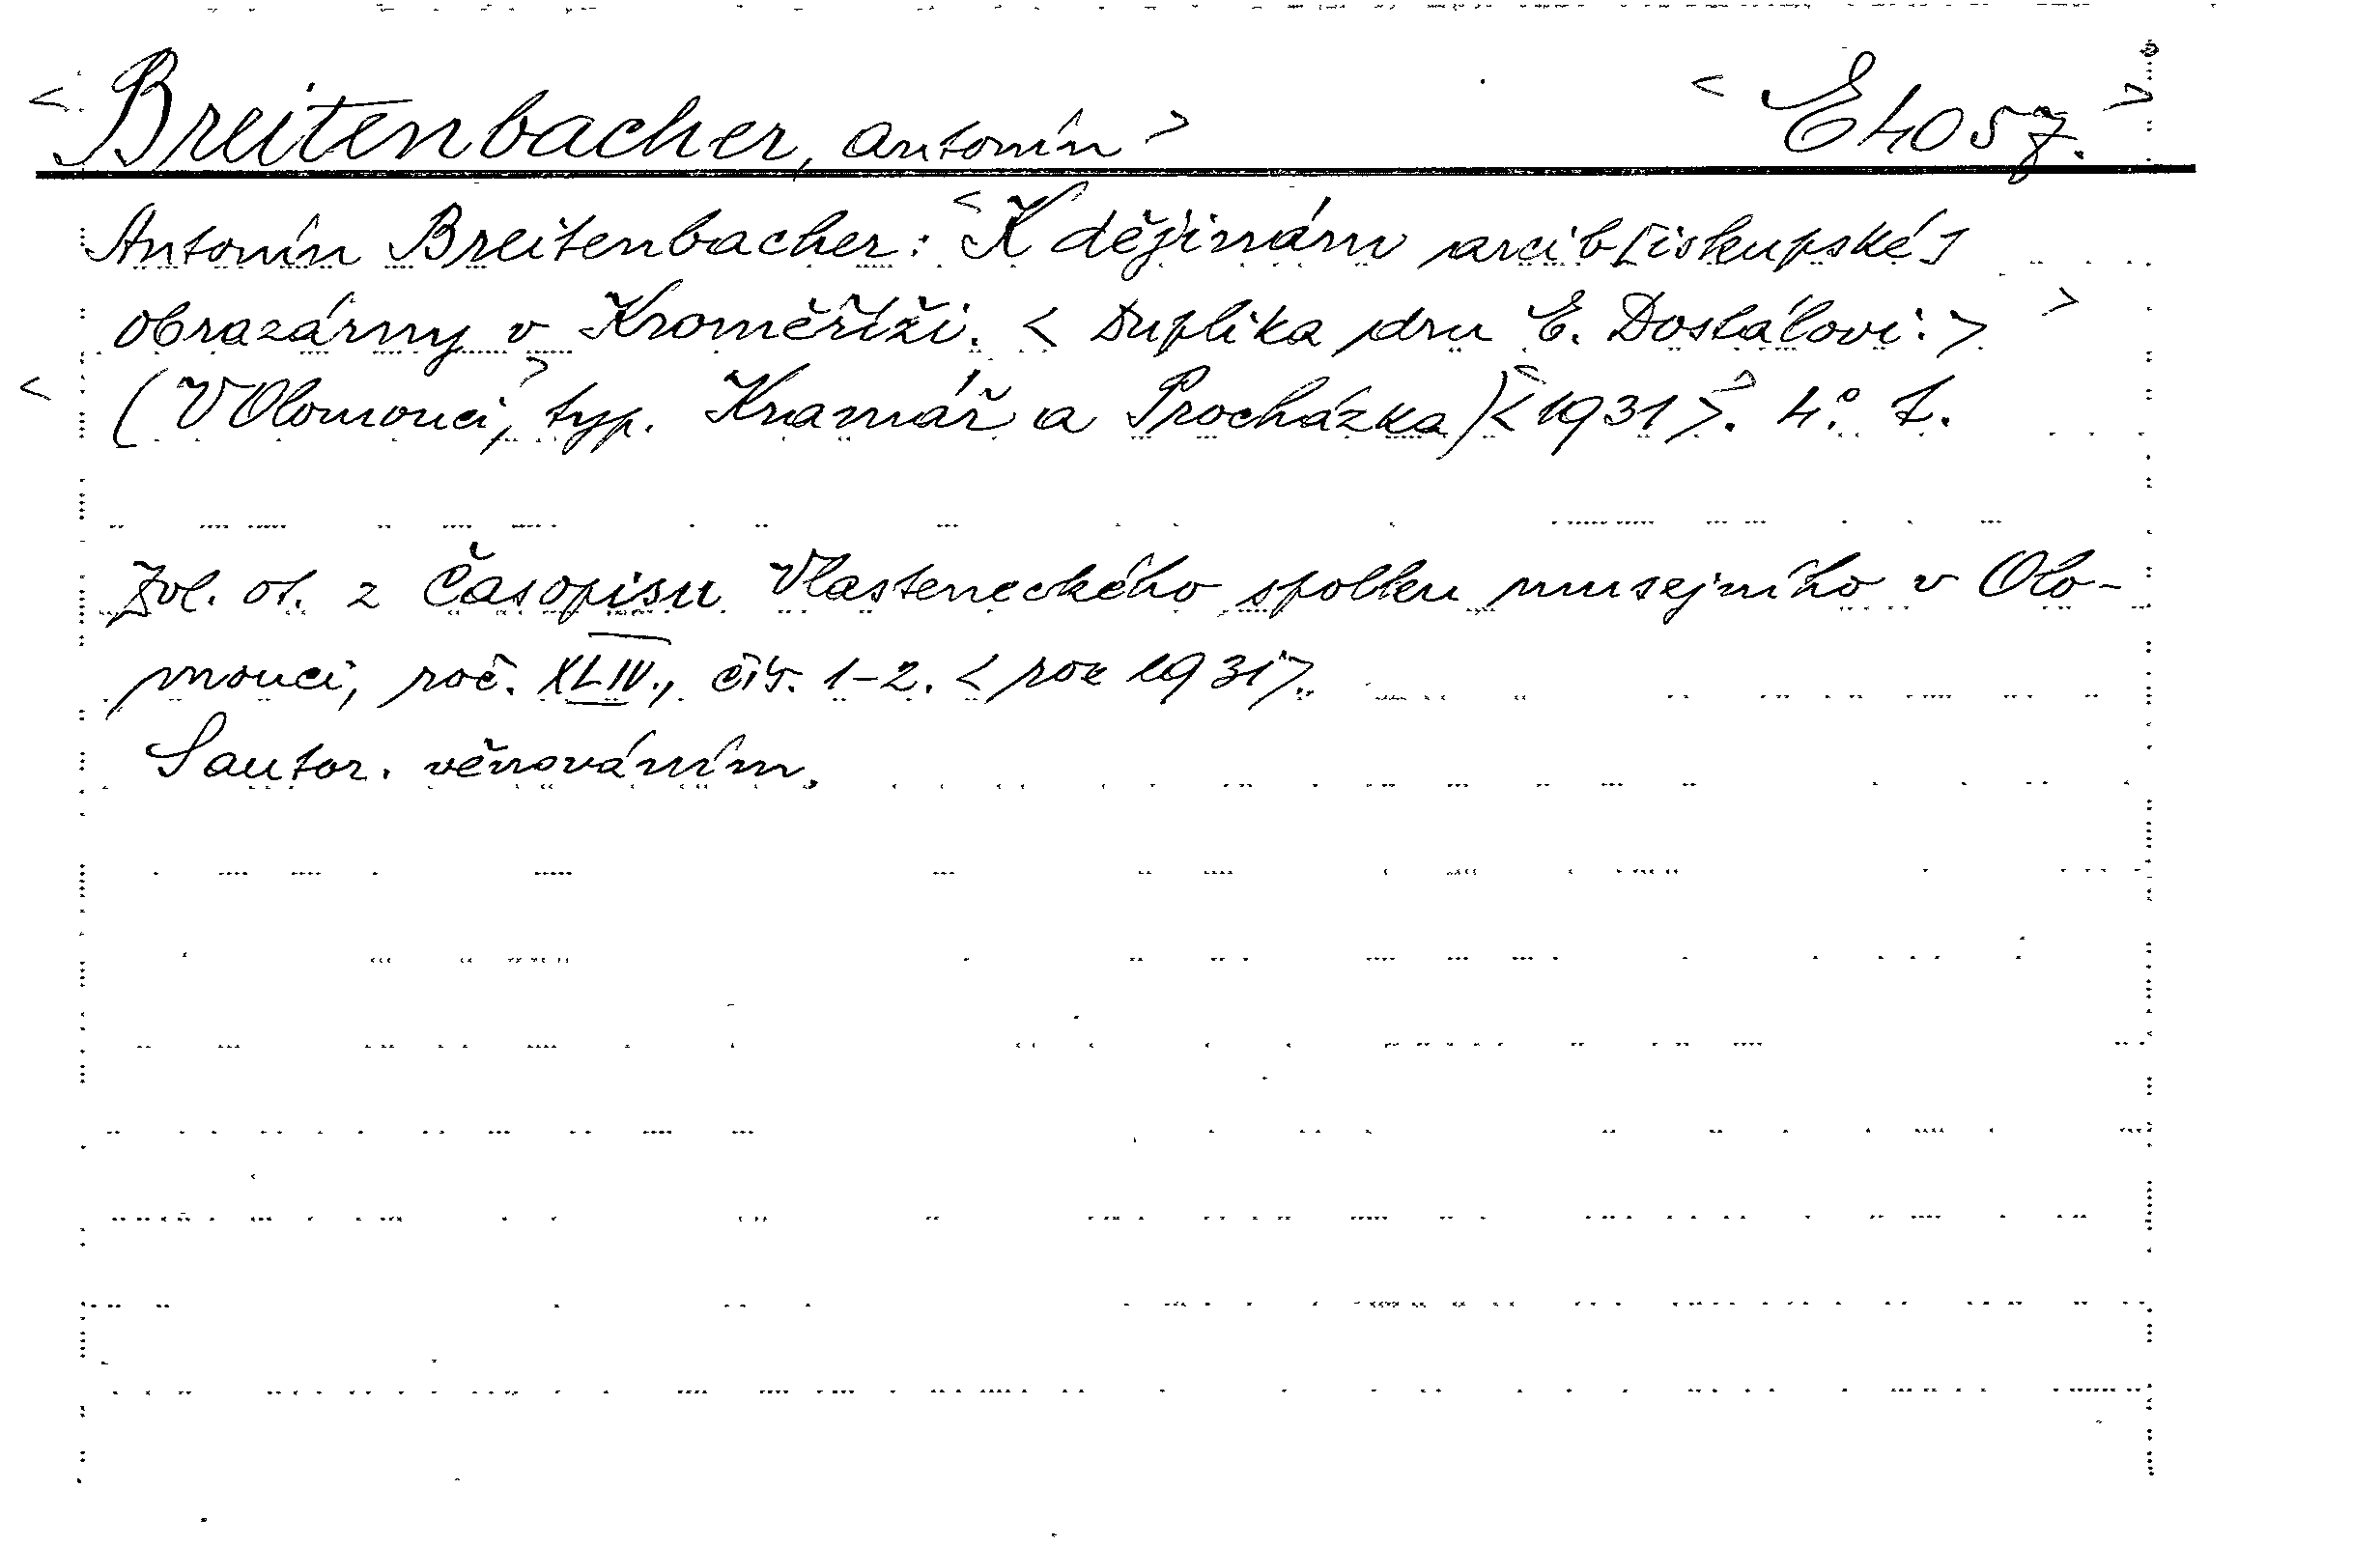 < Breitenbacher, Antonín > < E 4057. >
Antonín Breitenbacher: < K dějinám arcib[iskupské]
obrazárny v Kroměříži. < Duplika dru E. Dostálovi. > >
< (V Olomouci, > typ. Kramář a Procházka) < < 1931 > >. 4°. 7.
Zvl. ot. z Časopisu Vlasteneckého spolku musejního v Olo-
mouci, roč. XLIV., čís. 1-2. < rok 1931 >.
S autor. věnováním.